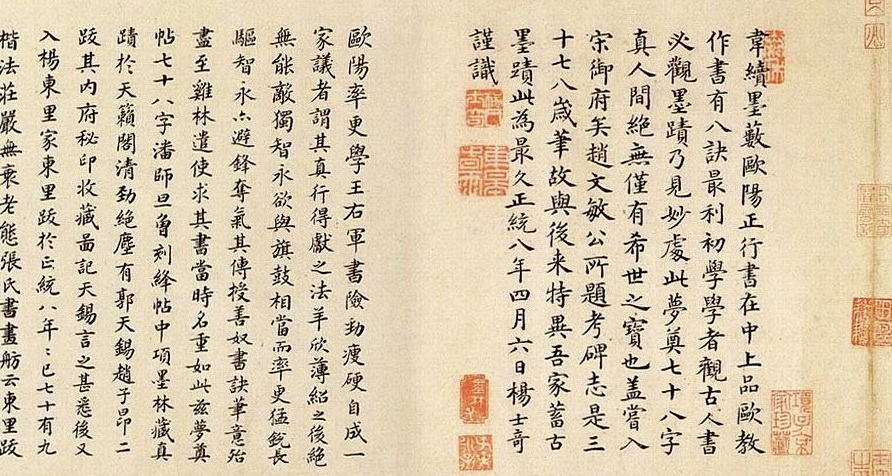 韋續墨藪歐陽正行書在中上品歐教
作書有八訣最利初學學者觀古人書
必觀墨蹟乃見妙處此夢奠七十八字
真人間絕無僅有希世之寶也蓋嘗入
宋御府矣趙文敏公所題考碑志是三
十七八歲筆故與後来特異吾家蓄古
墨蹟此為最久正統八年四月六日楊士奇
謹識
歐陽率更學王右軍書險劲瘦硬自成一
家議者謂其真行得獻之法羊欣薄紹之後絕
無能敵獨智永欲與旗鼓相當而率更猛銳長
驅智永亦避鋒奪氣其傳授善奴書訣華意殆
盡至雞林遣使求其書當時名重如此兹夢奠
帖七十八字潘師旦曾刻絳帖中項墨林藏真
蹟於天籟閣清勁絕塵有郭天錫趙子昂二
跋其内府秘印收藏啚記天錫言之甚悉後又
入楊東里家東里跋於正統八年已七十有九
楷法莊嚴無衰老態張氏書畫舫云東里跋